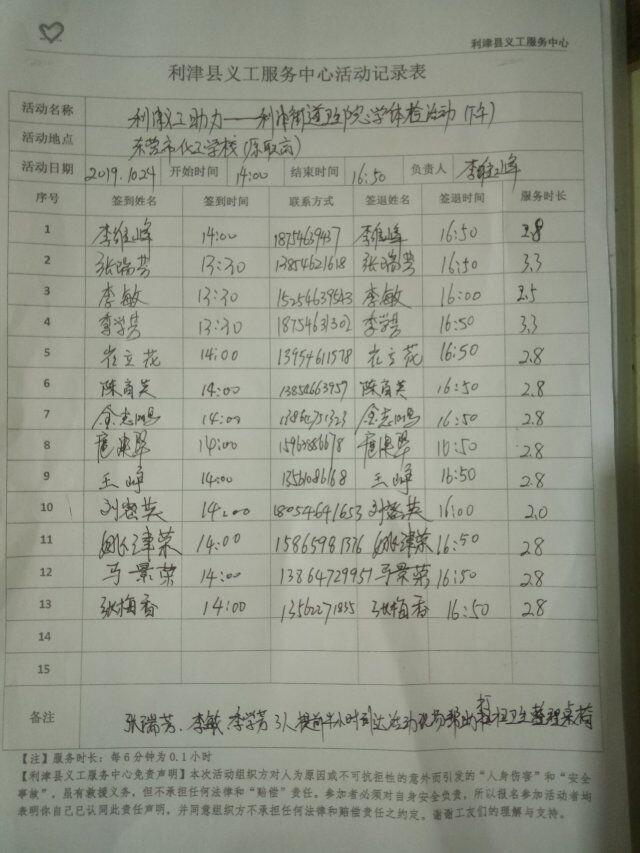 利津县义工服务中心
利津县义工服务中心活动记录表
活动名称 利津义工助力——利津街道卫生院学体检活动(下午)
活动地点 东营市化工学校(原职高)
活动日期 2019.10.24 开始时间 14:00 结束时间 16:50 负责人 李维峰
序号 签到姓名 签到时间 联系方式 签退姓名 签退时间 服务时长
1 李维峰 14:00 18754639437 李维峰 16:50 2.8
2 张瑞芳 13:30 13854621618 张瑞芳 16:50 3.3
3 李敏 13:30 15254639543 李敏 16:00 2.5
4 李学芳 13:30 18754631302 李学芳 16:50 3.3
5 崔立花 14:00 13954611578 崔立花 16:50 2.8
6 陈育英 14:00 13854663957 陈育英 16:50 2.8
7 金志鸿 14:00 16:50 2.8
8 14:00 16:50 2.8
9 王峥 14:00 王峥 16:50 2.8
10 刘密英 14:00 18054641653 刘密英 16:00 2.0
11 姚津荣 14:00 15865981376 姚津荣 16:50 2.8
12 马景荣 14:00 13864729957 马景荣 16:50 2.8
13 张梅香 14:00 13562271835 张梅香 16:50 2.8
14
15
备注 张瑞芳、李敏、李学芳3人提前半小时到达活动现场帮助打扫卫生整理桌椅
【注】服务时长：每6分钟为0.1小时
【利津县义工服务中心免责声明】本次活动组织方对人为原因或不可抗拒性的意外而引发的“人身伤害”和“安全
事故”，虽有救援义务，但不承担任何法律和“赔偿”责任。参加者必须对自身安全负责，所以报名参加活动者均
表明你自己已认同此责任声明，并同意组织方不承担任何法律和赔偿责任之约定。谢谢工友们的理解与支持。